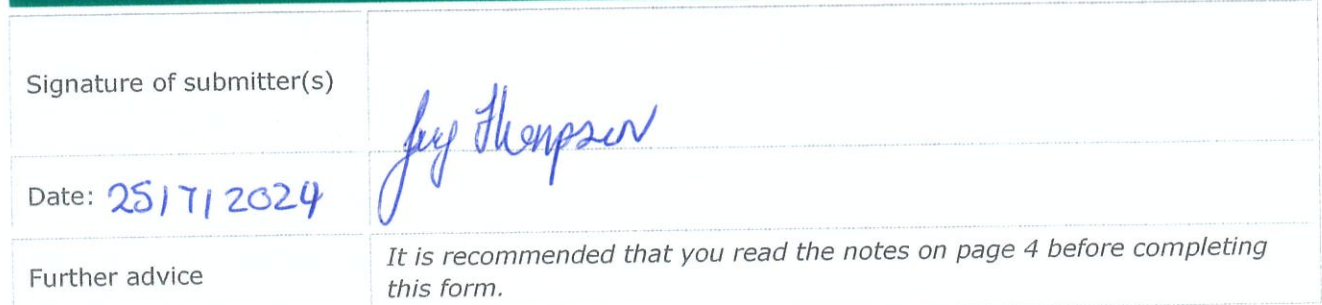 Signature of submitter(s)
Thompson
Date: 25/7/2024
Further advice
It is recommended that you read the notes on page 4 before completing
this form.